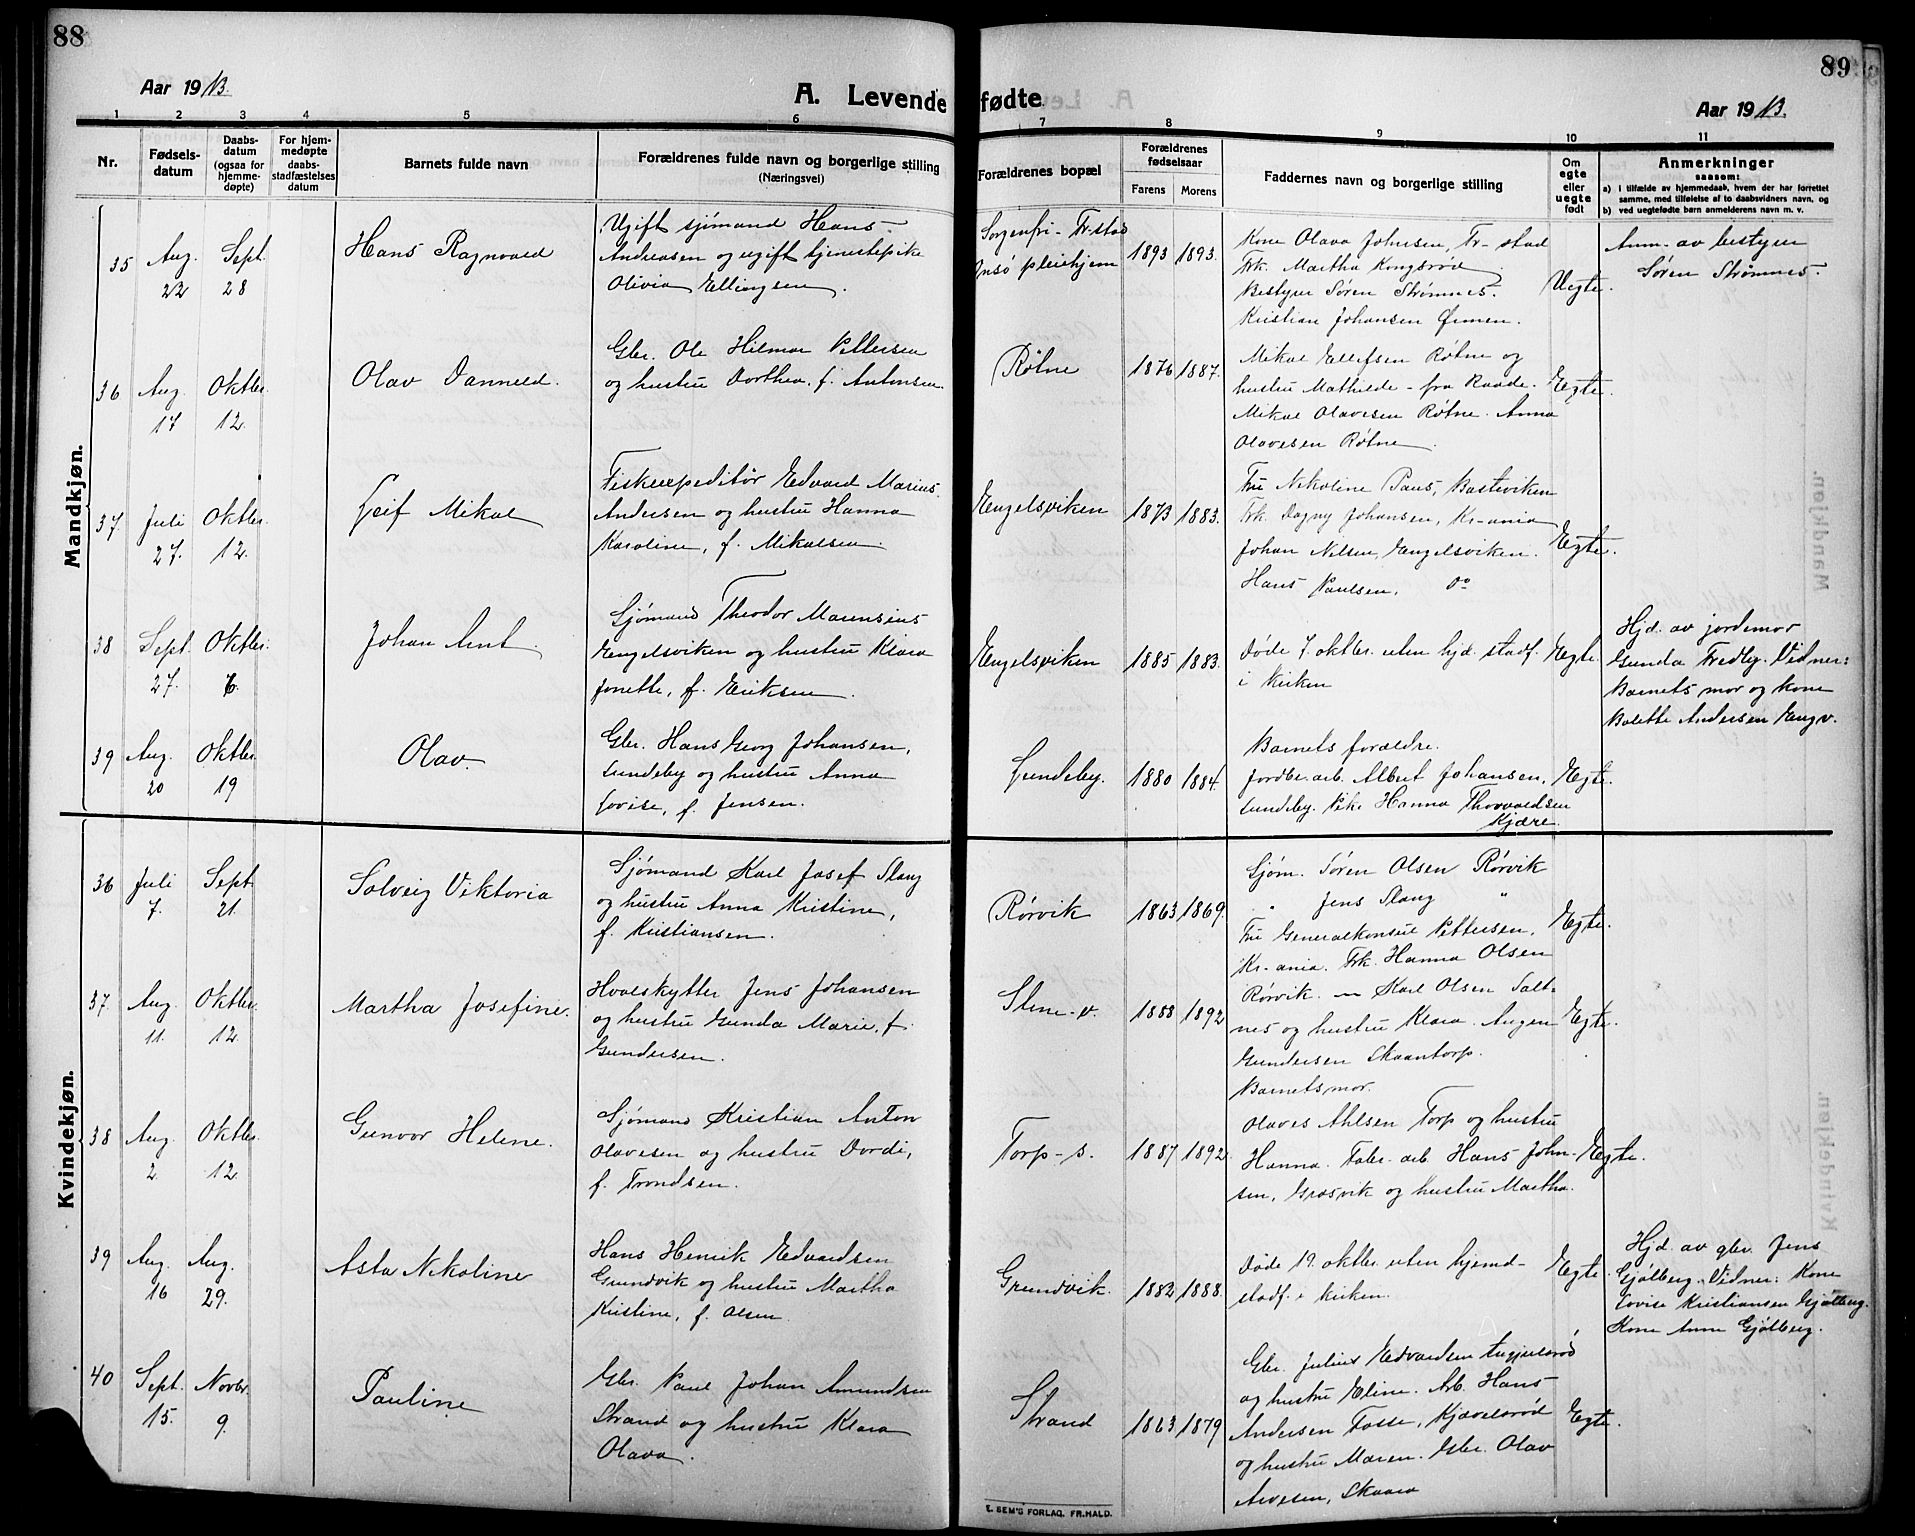 88
Aar 1913.
A. Levende
1 2 3 4 5 6
Nr.
Fødsels-
datum
Daabs-
datum
(ogsaa for
hjemme-
døpte)
For hjem-
medøpte
daabs-
stadfæstelses
datum
Barnets fulde navn
Forældrenes fulde navn og borgerlige stilling
(Næringsvei)
Mandkjøn.
35
Aug.
22
Sept.
28
Hans Ragnvald
Ugift sjømand Hans
Andreasen og ugift tjenestepike
Olivia Ellingsen.
36
Aug.
17
Oktbr.
12.
Olav
Gbr. Ole Hilmar Pettersen
og hustru Dorthea, f. Antonsen.
37.
Juli
27.
Oktbr.
12.
Leif Mikal
Fiskeexpeditør Edvard Marius
Andersen og hustru Hanna
Karoline, f. Mikalsen.
38
Sept.
27.
Oktbr.
6.
Johan Arnt.
Sjømand Theodor Marensius
Engelsviken og hustru Klara
Jonette, f. Eriksen.
39
Aug.
20
Oktbr.
19
Olav.
Gbr. Hans Georg Johansen,
Lundeby og hustru Anna
Lovise, f. Jensen.
Kvindekjøn.
36
Juli
7.
Sept
21.
Solveig Viktoria
Sjømand Karl Josef Slang
og hustru Anna Kristine,
f. Kristiansen.
37.
Aug.
11.
Oktbr.
12.
Martha Josefine.
Hvalskytter Jens Johansen
og hustru Gunda Marie, f.
Gundersen.
38
Aug.
2.
Oktbr.
12.
Gunvor Helene.
Sjømand Kristian Anton
Olavesen og hustru Dordi,
f. Trondsen.
39
Aug.
16
Aug.
29.
Asta Nikoline
Hans Henrik Edvardsen
Grundvik og hustru Martha
Kristine, f. Olsen
40
Sept.
15.
Novbr.
9.
Pauline
Gbr. Paul Johan Amundsen
Strand og hustru Klara
Olava.
89
fødte
Aar 1913.
7 8 9 10 11
Forældrenes bopæl
Forældrenes
fødselsaar
Farens
Morens
Faddernes navn og borgerlige stilling
Om
egte
eller
uegte
født
Anmerkninger
saasom:
a) i tilfælde av hjemmedaab, hvem der har forrettet
samme, med tilføielse af to daabsvidners navn, og
b) ved uegtefødte barn anmelderens navn m. v.
Sorgenfri - Fr.stad
Onsø pleiehjem
1893 1893.
Kone Olava Johnsen, Fr-stad
Frk. Martha Kongsrød
Bestyrer Søren Strømnes.
Kristian Johansen Ørmen.
Uegte.
Anm. av bestyrer
Søren Strømnes.
Røtne
1876 1887.
Mikal Ellefsen Røtne og
hustru Mathilde - fra Raade.
Mikal Olavesen Røtne. Anna
Olavesen Røtne.
Egte.
Engelsviken
1873 1883.
Fru Nikoline Paus, Basteviken
Frk. Dagny Johansen, Kr-ania
Johan Nilsen, Engelsviken.
Hans Paulsen, do
Egte.
Engelsviken
1885 1883.
Døde 7. oktbr. uten hjd. stadf.
i kirken
Egte.
Hjd. av jordemor
Gunda Fredly. Vidner:
Barnets mor og kone
Bolette Andersen Engv.
Lundeby.
1880 1884.
Barnets forældre.
Jordbr. arb. Albert Johansen,
Lundeby. Pike Hanna Thorvaldsen
Kjære.
Egte.
Rørvik
1863 1869.
Sjøm. Søren Olsen Rørvik
" Jens Slang "
Fru Generalkonsul Pettersen,
Kr-ania. Frk. Hanna Olsen
Rørvik.
Egte.
Slene-v.
1888 1892
Karl Olsen Salt-
nes og hustru Klara. Augen
Gundersen Skaantorp.
Barnets mor.
Egte.
Torp-s.
1887 1892
Olaves Ahlsen Torp og hustru
Hanna. Fabr. arb. Hans John-
sen, Græsvik og hustru Martha.
Egte.
Grundvik.
1882 1888.
Døde 19. oktbr. uten hjemd-
stadf. i kirken.
Egte.
Hjd. av gbr. Jens
Gjølberg. Vidner: Kone
Lovise Kristiansen Gjølberg.
Kone Anne Gjølberg.
Strand
1863 1879
Gbr. Julius Edvardsen
og hustru Eline. Arb. Hans
Andersen Fosse, Kjævelsrød
og hustru Maren. Gbr. Olav
Arvesen, Skaara
Egte.
E. SEM'S FORLAG. FR.HALD.